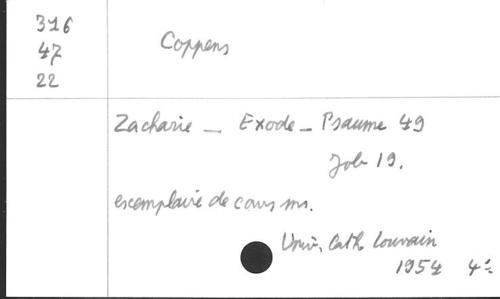 316
47
22
Coppens
Zacharie - Exode - Psaume 49
Job 19.
exemplaire de cours ms.
Univ. Cath. Louvain
1954 4º